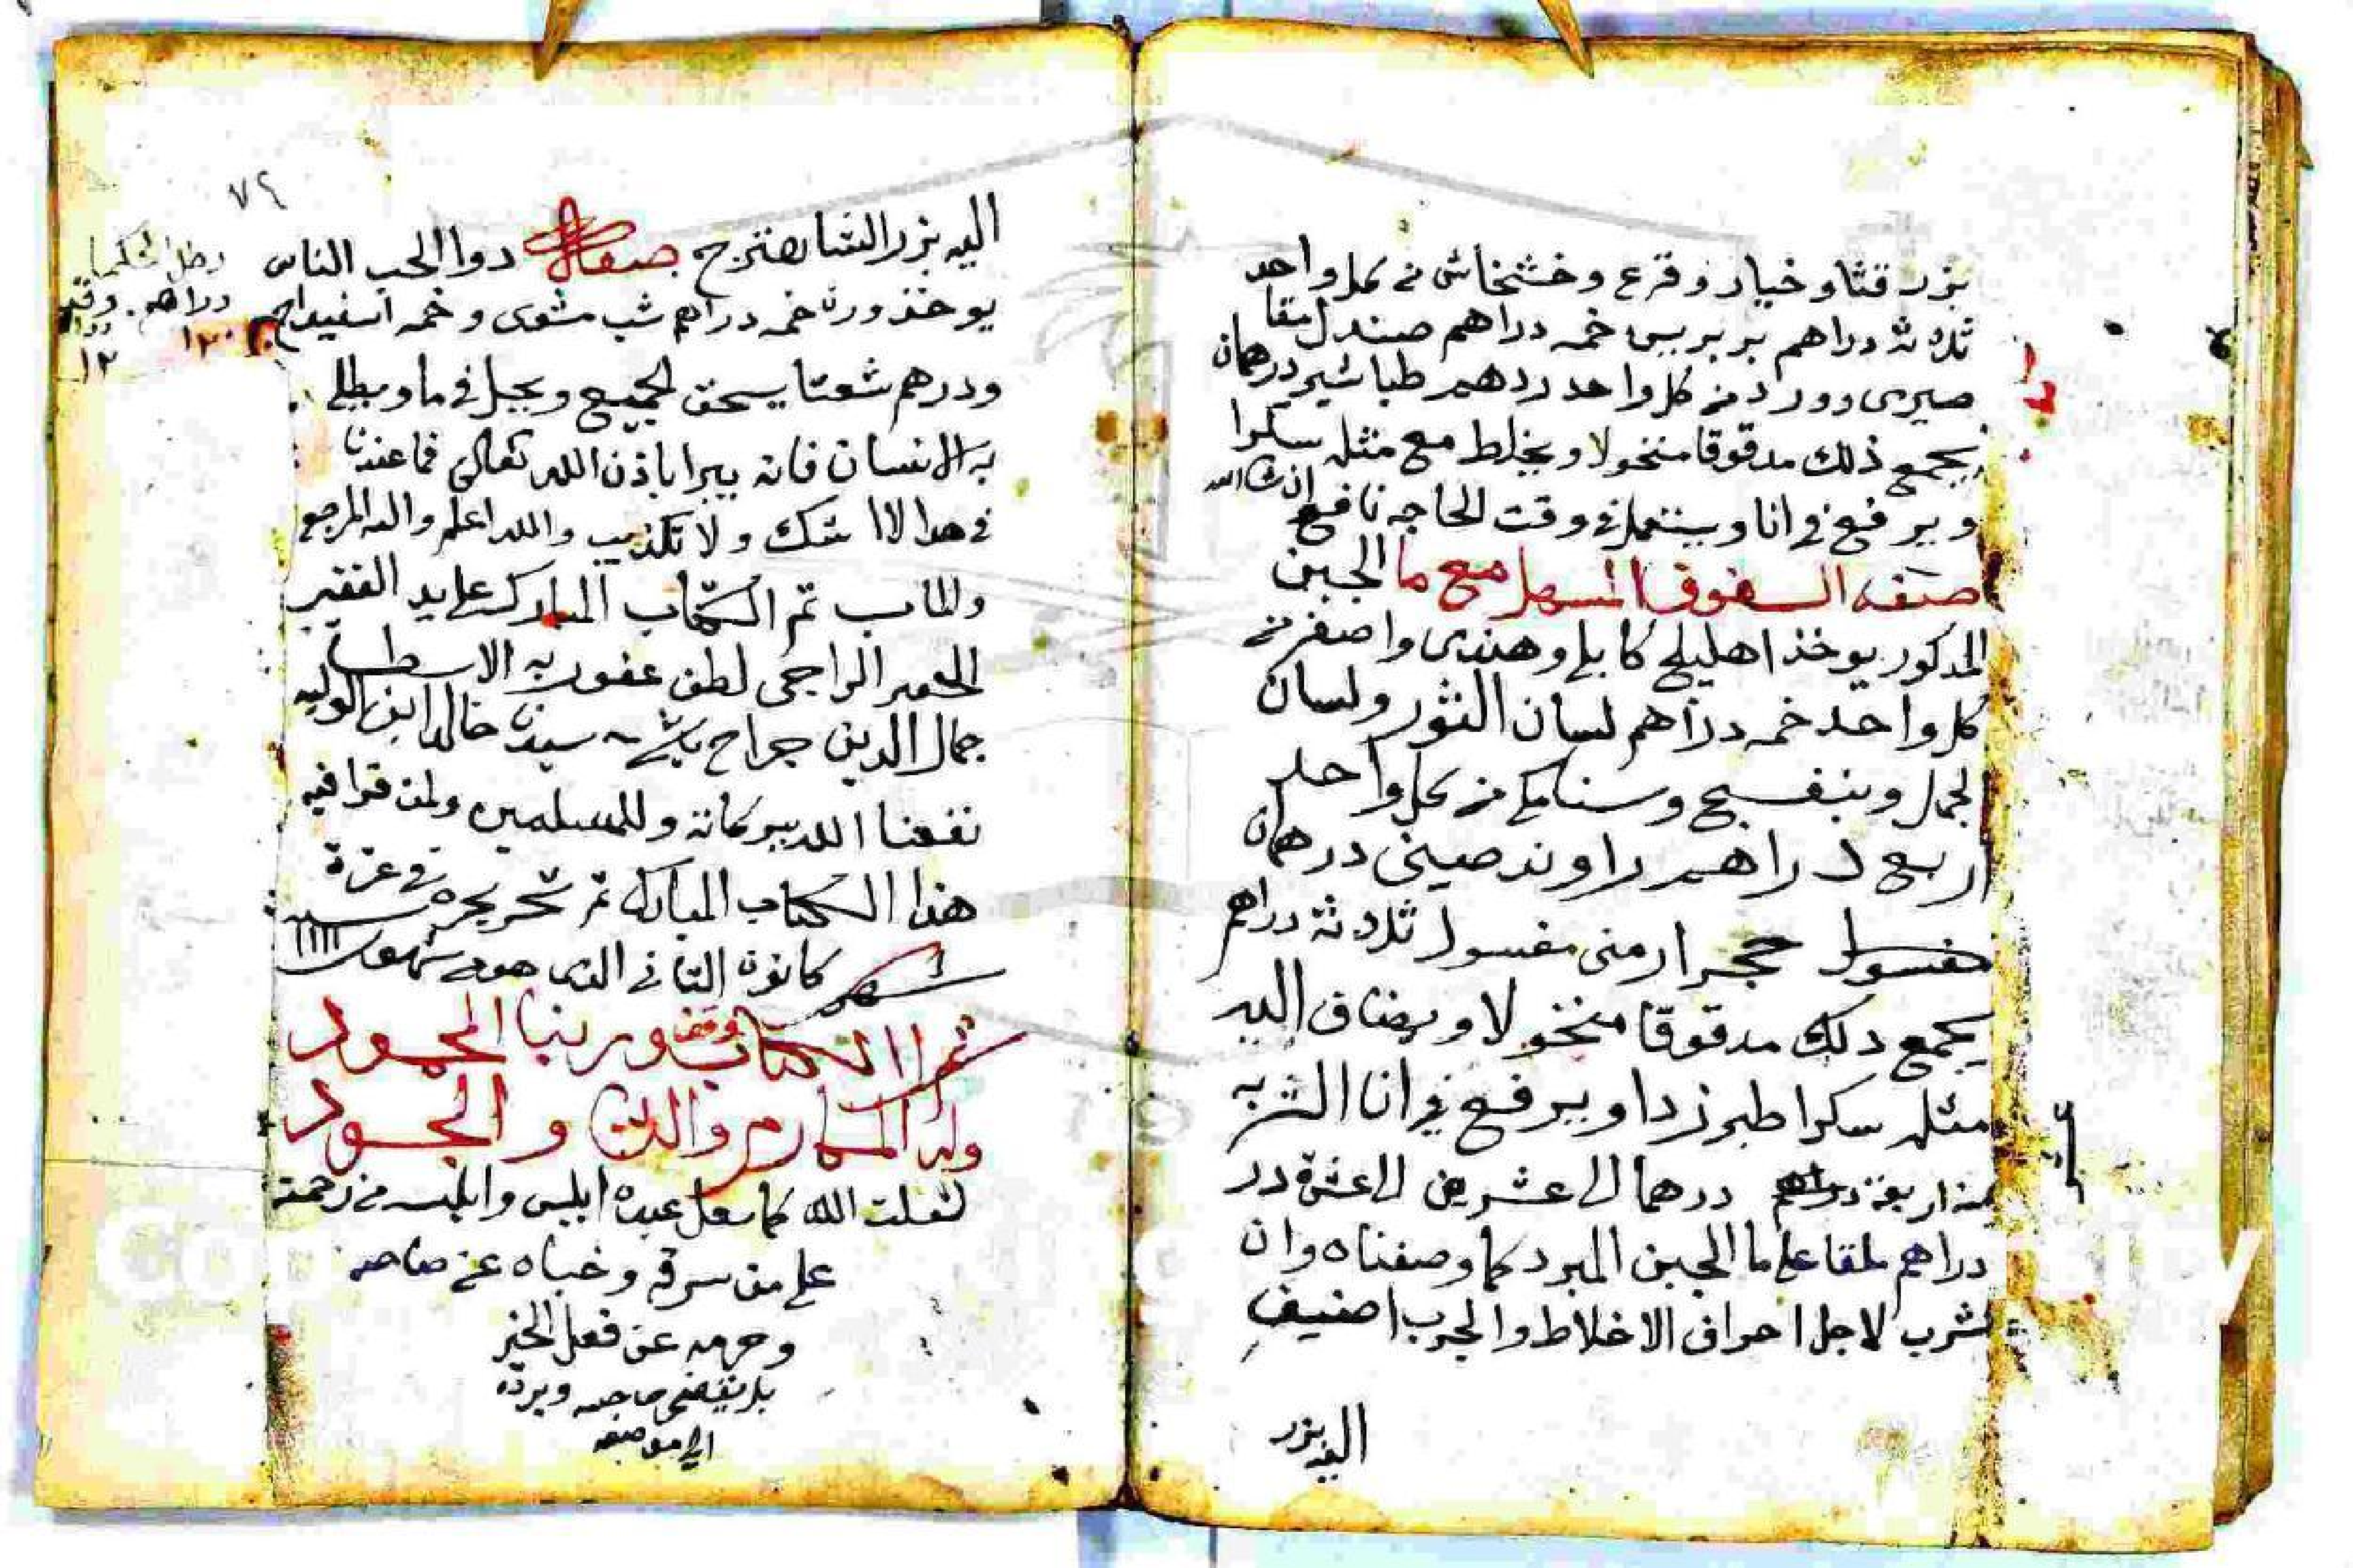 بزر قثا و خيار و قرع و خشخاش من كل واحد
ثلاثة دراهم بربريس خمسه دراهم صندل مقا
صيرى وورد من كل واحد درهم طباشير درهمان
يجمع ذلك مدقوقا منخولا و يخلط مع مثله سكرا
و يرفع في انا و يستعمل في وقت الحاجه نافع ان شا الله
صفه السفوف المسهل مع ما الجبن
المذكور يوخذ اهليلج كابلي و هندى و اصفر من
كل واحد خمسه دراهم لسان الثور ولسان
الحمل و بنفسج و سنامكي من كل واحد
اربع دراهم راوند صيني درهمان
مغسول حجر ارمنى مغسول ثلاثة دراهم
يجمع دلك مدقوقا منخولا و يضاف اليه
مثله سكرا طبرزدا و يرفع في انا الشربه
منه اربعة دراهم درهما الى عشرين الى عشرة در
دراهم ملقا على ما الجبن المبرد كما وصفناه وان
شرب لاجل احراق الاخلاط والجرب اضيف
اليه بزر
٧٩
اليه بزر الشاهترج صفة دوا الحب الناس
يوخذ ورنا خمسه دراهم شب مشوى و خمسه اسفيداج
ودرهم شعتا يسحق الجميع و يجبل في ما و يطلى
به الانسان فانه يبرا باذن الله تعالى فما عندنا
في هدا الا شك ولا تكذيب والله اعلم واليه المرجع
والماب تم الكتاب المبارك على يد الفقير
الحقير الراجى لطف عفو ربه
جمال الدين جراح سيدنا خالد ابن الوليد
نفعنا الله ببركاته و للمسلمين ولمن قرا فيه
هذا الكتاب المبارك تم تحريره في غزة
شهر كانون الثاني الذى هو من شهور سنه ١١١١
تم الكتاب وربنا المحمود
وله المكارم و الجود
لعلت الله كما على عبده ابليس وابليسه من رحمته
على من سرقه و خباه عن صاحبه
و حرمه عن فعل الخير
بل يقضى حاجته ويرده
الى موضعه
دراهم
١٢٠
١٢